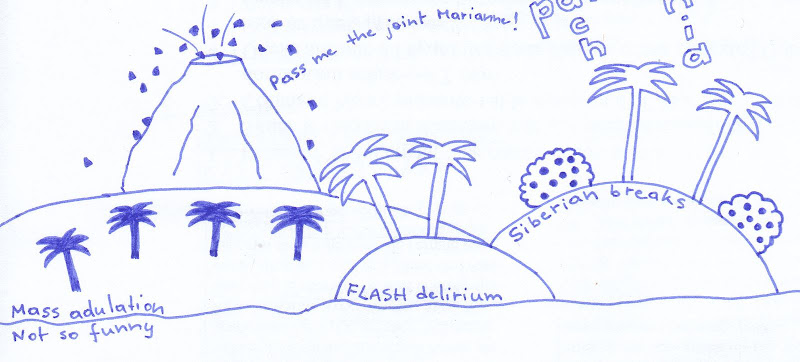 Pass me the joint Marianne!
Siberian breaks
FLASH delirium
Mass adulation
Not so funny